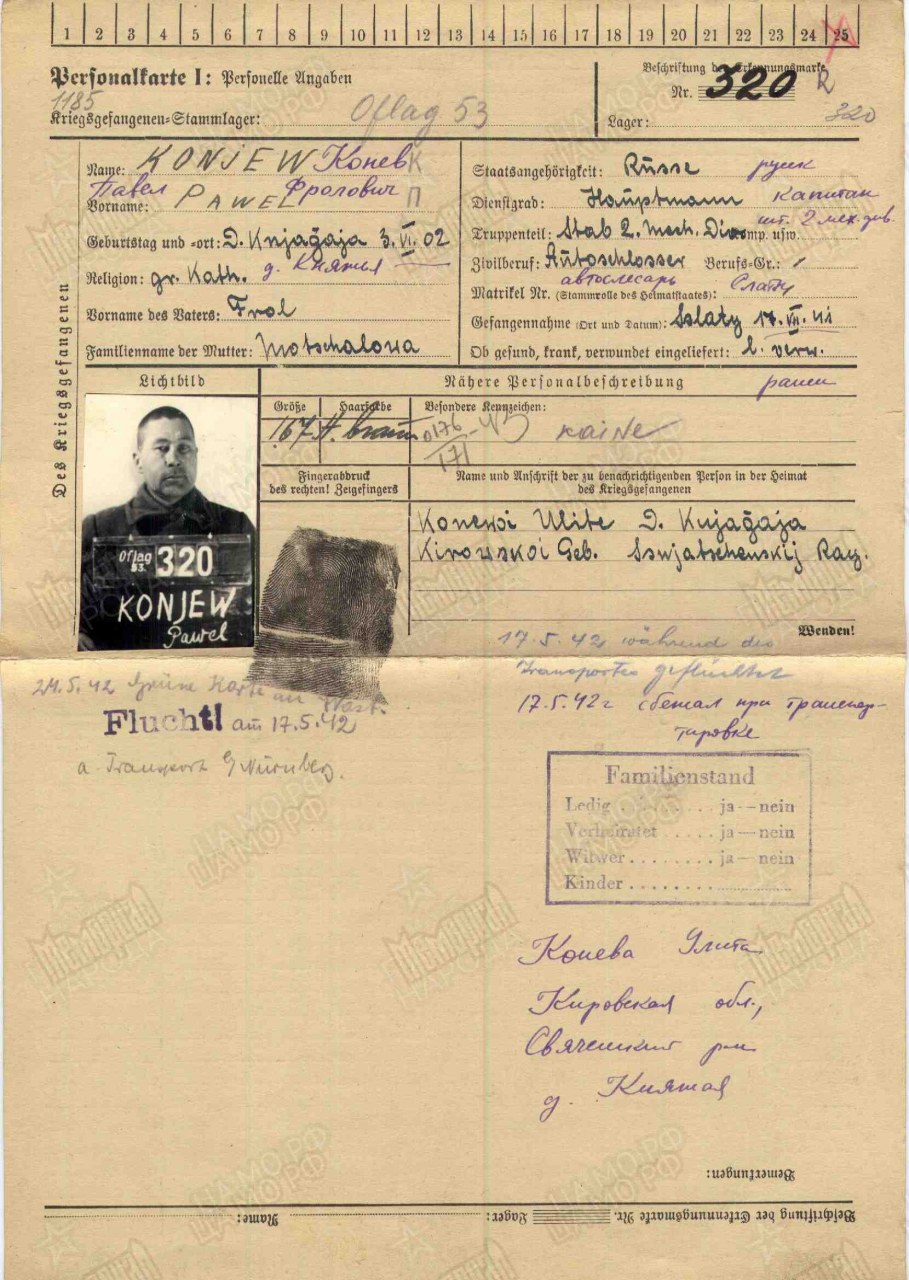 1 2 3 4 5 6 7 8 9 10 11 12 13 14 15 16 17 18 19 20 21 22 23 24 25
Personalkarte I: Personelle Angaben
Beschriftung der Erkennungsmarke
1185
Nr. 320 R
Kriegsgefangenen-Stammlager: Oflag 53
Lager: 320
Des Kriegsgefangenen
Name: KONJEW Конев К
Павел Фролович
Vorname: PAWEL П
Geburtstag und -ort: D. Knjagaja 3.VI.02
д. Княжья
Religion: gr. Kath.
Vorname des Vaters: Frol
Familienname der Mutter: Motschalowa
Staatsangehörigkeit: Russe русск
Dienstgrad: Hauptmann капитан
шт. 2 мех. див.
Truppenteil: Stab 2. Mech. Div. Komp. usw.
Zivilberuf: Autoschlosser Berufs-Gr.: /
автослесарь
Matrikel Nr. (Stammrolle des Heimatstaates):
Gefangennahme (Ort und Datum): 17.VII.41
Ob gesund, krank, verwundet eingeliefert: l. verw.
ранен
Lichtbild
Nähere Personalbeschreibung
Größe Haarfarbe Besondere Kennzeichen:
167 braun kaine
Fingerabdruck
des rechten! Zeigefingers
Name und Anschrift der zu benachrichtigenden Person in der Heimat
des Kriegsgefangenen
Konewoi Ulite D. Knjagaja
Kirowskoi Geb. Sswjatschenskij Ray.
Oflag
53. 320
KONJEW
Pawel
Wenden!
17.5.42 während des
Transportes geflüchtet
17.5.42 г сбежал при транспор-
тировке
21.5.42 Grüne Karte an Wast.
Flucht! am 17.5.42
a. Transport Nürnberg.
Familienstand
Ledig ........ ja — nein
Verheiratet ..... ja — nein
Witwer ........ ja — nein
Kinder ........
Конева Улита
Кировская обл.,
Свяченский рн
д. Княжая
Bemerkungen:
Beschriftung der Erkennungsmarke Nr. Lager: Name:
ЦАМО РФ
ПАМЯТЬ НАРОДА